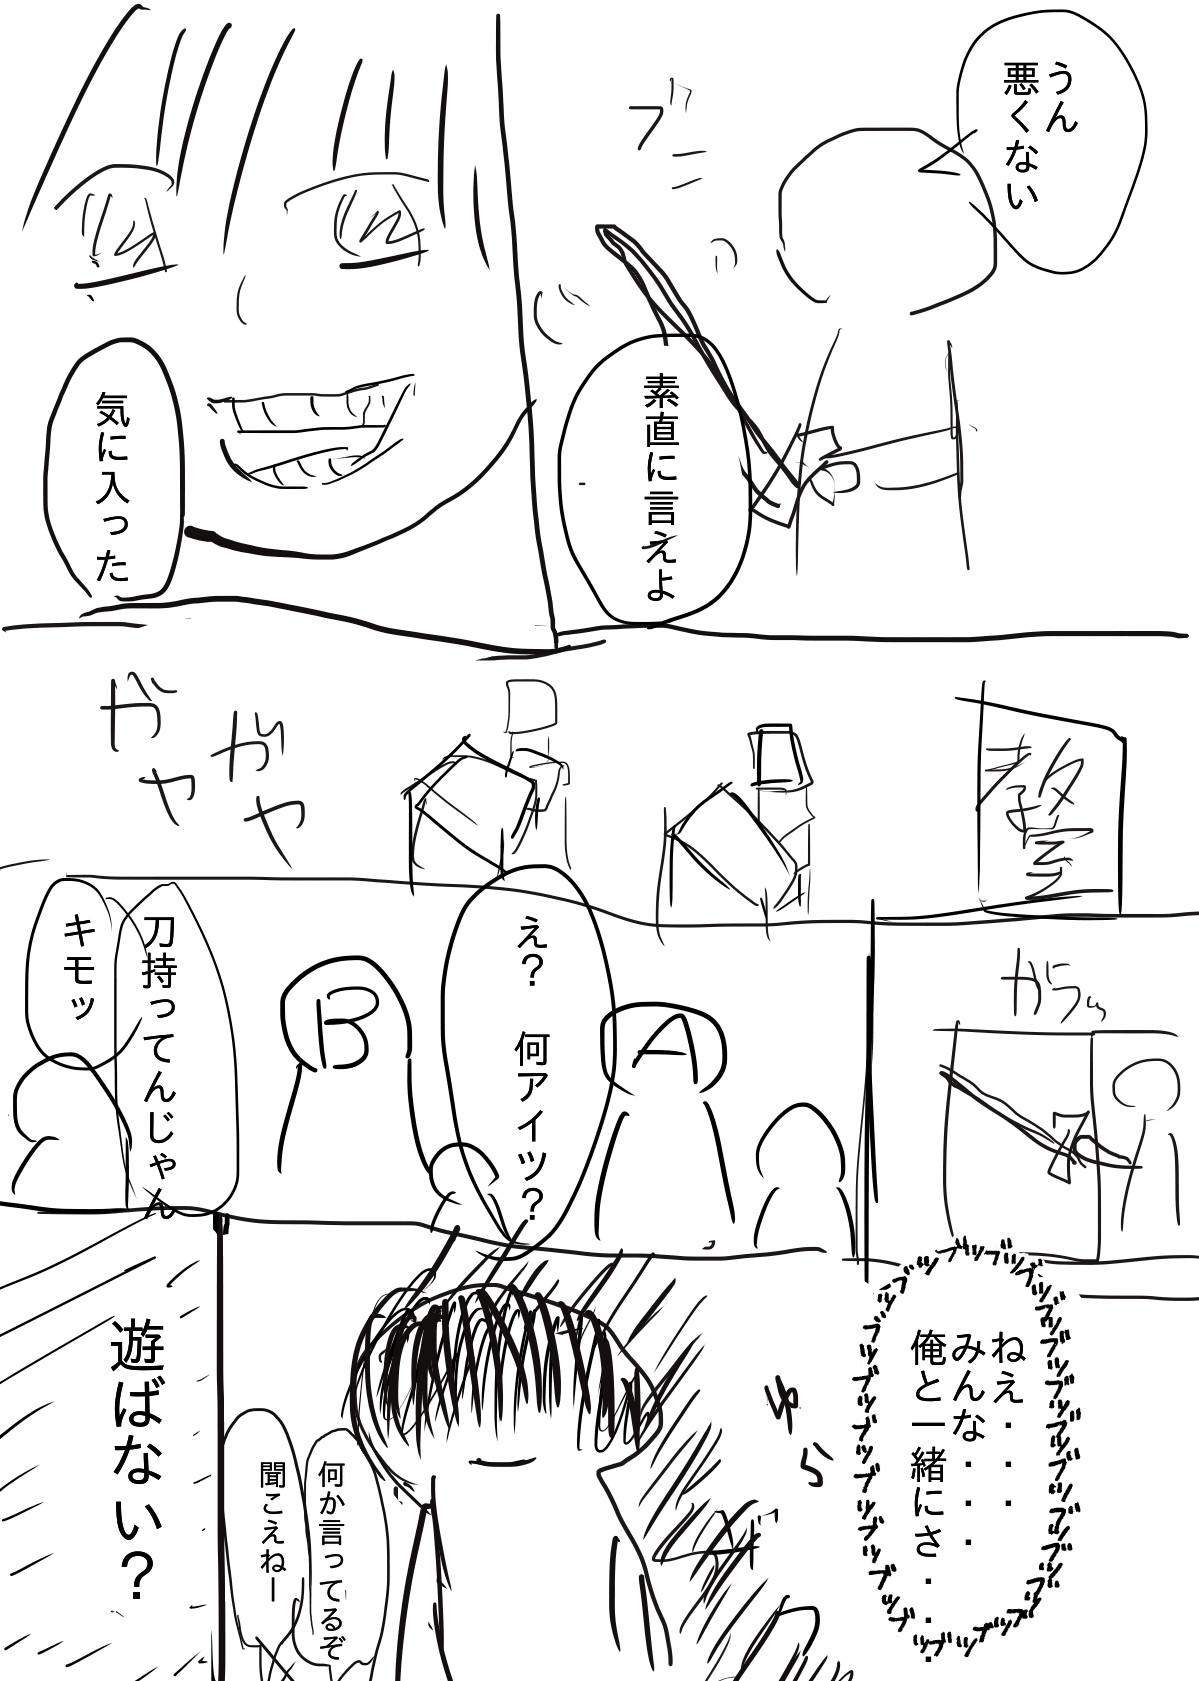 うん
悪くない
ブン
素直に言えよ
気に入った
教室
ガヤ
ガヤ
ガラッ
A
え？　何アイツ？
B
刀持ってんじゃん
キモッ
ブツブツブツブツブツブツ
ねえ・・・
みんな・・・
俺と一緒にさ・・・
ゆら
何か言ってるぞ
聞こえねー
遊ばない？